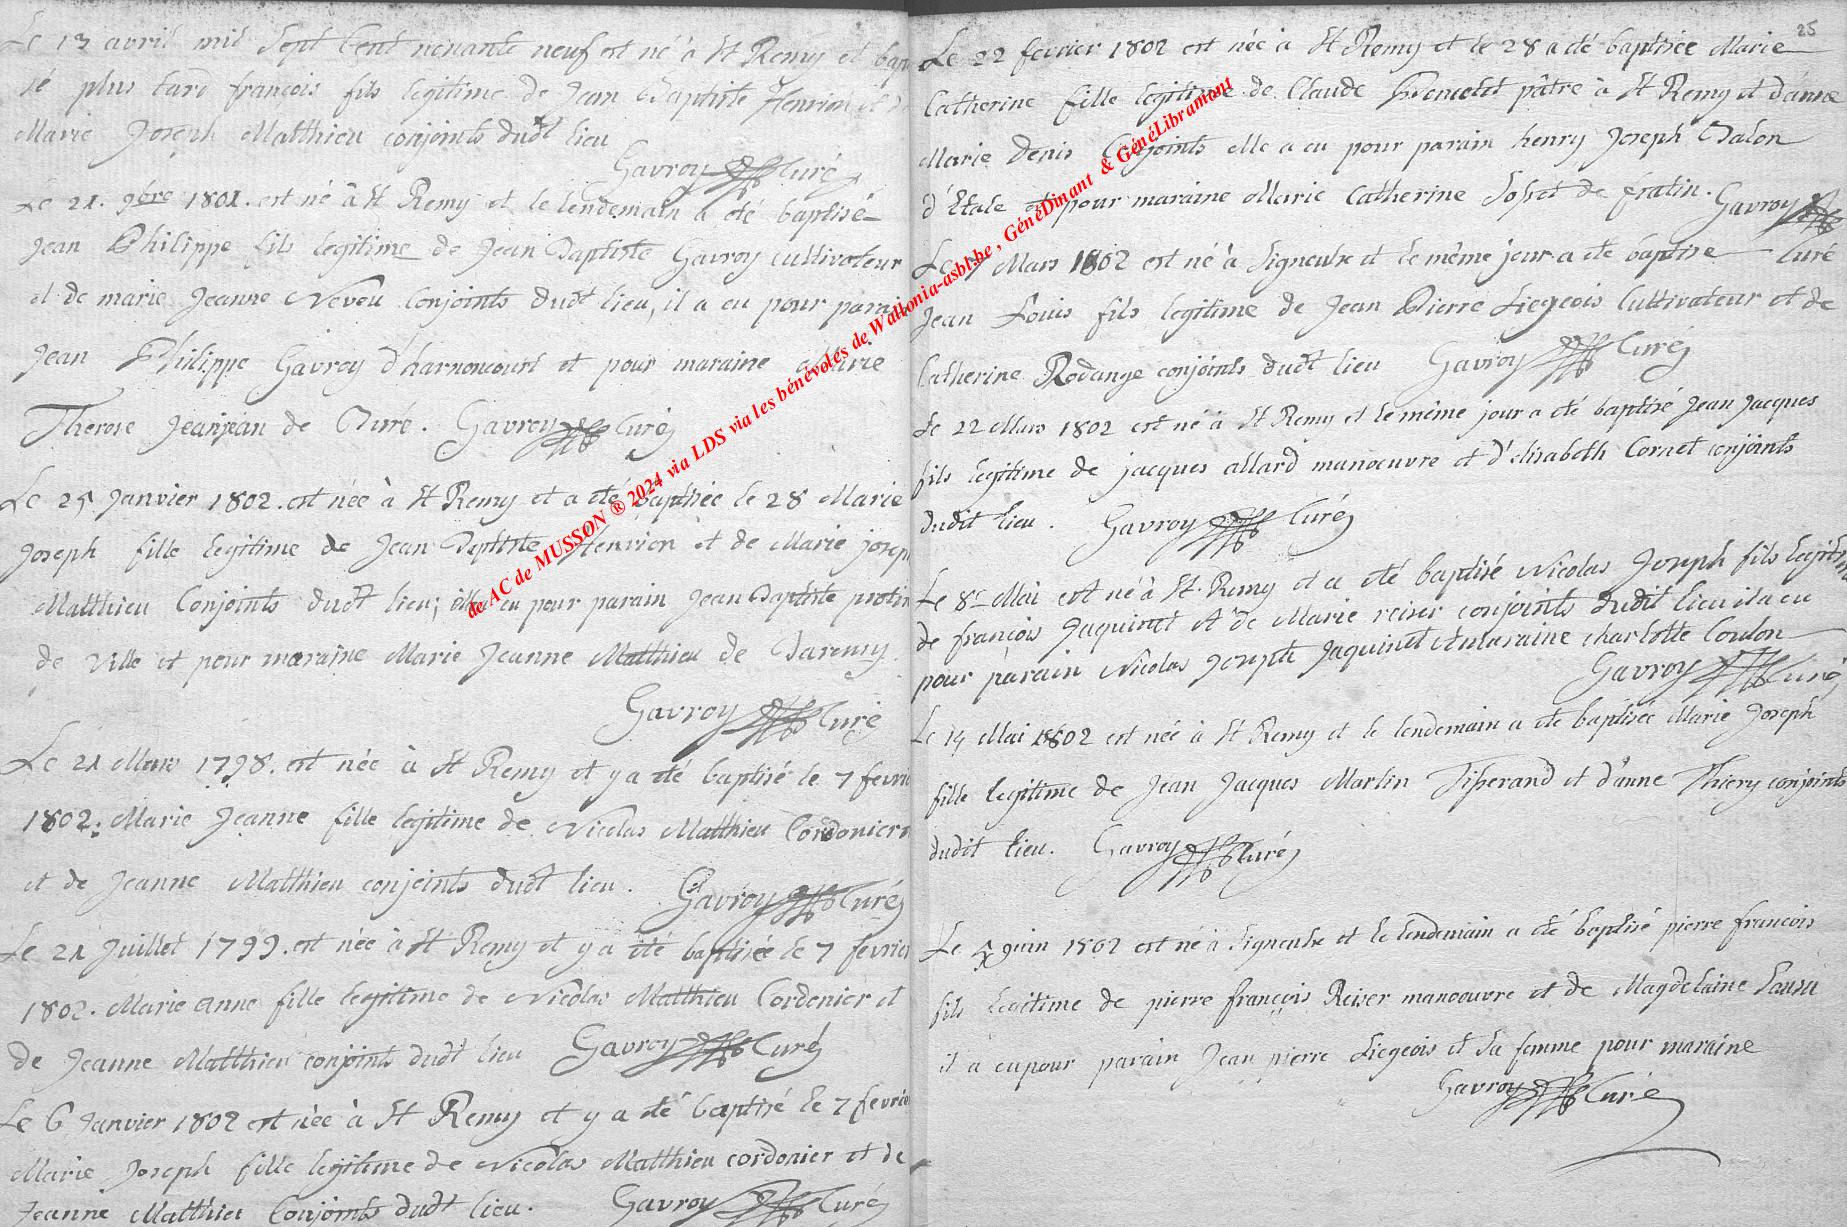 Le 13 avril mil sept cent nonante neuf est né à St Remy et bap
sé plus tard françois fils legitime de Jean Baptiste Henrion et
Marie Joseph Matthieu conjoints dudt lieu
Gavroy Curé
Le 21. 9bre 1801. est né à St Remy et le lendemain a été baptisé
Jean Philippe fils legitime de Jean Baptiste Gavroy cultivateur
et de marie Jeanne Neveu Conjoints dudt lieu, il a eu pour parai
Jean Philippe Gavroy d'harnoncourt et pour maraine Marie
Therese Jeanjean de Buré. Gavroy Curé
Le 25 Janvier 1802. est née à St Remy et a été baptisée le 28 Marie
Joseph fille legitime de Jean Baptiste Henrion et de Marie josep
Matthieu Conjoints dudt lieu; elle a eu pour parain Jean Baptiste protin
de Ville et pour maraine Marie Jeanne Matthieu de
Gavroy Curé
Le 21 Mars 1798. est née à St Remy et y a été baptisé le 7 fevri
1802. Marie Jeanne fille legitime de Nicolas Matthieu Cordonier
et de Jeanne Matthieu conjoints dudt lieu. Gavroy Curé
Le 21 Juillet 1799. est née à St Remy et y a été baptisée le 7 fevrier
1802. Marie anne fille legitime de Nicolas Matthieu Cordonier et
de Jeanne Matthieu conjoints dudt lieu Gavroy Curé
Le 6 Janvier 1802 est née à St Remy et y a été baptisé le 7 fevrie
Marie Joseph fille legitime de Nicolas Matthieu cordonier et de
Jeanne Matthieu Conjoints dudt lieu. Gavroy Curé
25
Le 22 fevrier 1802 est née à St Remy et le 28 a été baptisée Marie
Catherine fille legitime de Claude pâtre à St Remy et d'anne
Marie Denis Conjoints elle a eu pour parain henry Joseph Balon
d'Etale et pour maraine Marie Catherine Sosset de fratin. Gavroy
Curé
Le 7 Mars 1802 est né à Signeulx et le même jour a été baptisé
Jean Louis fils legitime de Jean Pierre Liegeois Cultivateur et de
Catherine Rodange conjoints dudt lieu Gavroy Curé
Le 22 Mars 1802 est né à St Remy et le même jour a été baptisé Jean Jacques
fils legitime de jacques allard manoeuvre et d'elisabeth Cornet conjoints
dudit lieu. Gavroy Curé
Le 8e Mai est né à St. Remy et a été baptisé Nicolas Joseph fils legitim
de françois Jaquinet et de Marie reiser conjoints dudit lieu il a eu
pour parain Nicolas Joseph Jaquinet et maraine charlotte Coulon
Gavroy Curé
Le 14 Mai 1802 est née à St Remy et le lendemain a été baptisée Marie Joseph
fille legitime de Jean Jacques Martin Tisserand et d'anne Thiery conjoints
dudit lieu. Gavroy Curé
Le juin 1802 est né à Signeulx et le lendemain a été baptisé pierre francois
fils legitime de pierre françois Reiser manoeuvre et de Magdelaine
il a eu pour parain Jean pierre Liegeois et sa femme pour maraine
Gavroy Curé
de AC de MUSSON ® 2024 via LDS via les bénévoles de Wallonia-asbl.be , GénéDinant & GénéLibramont